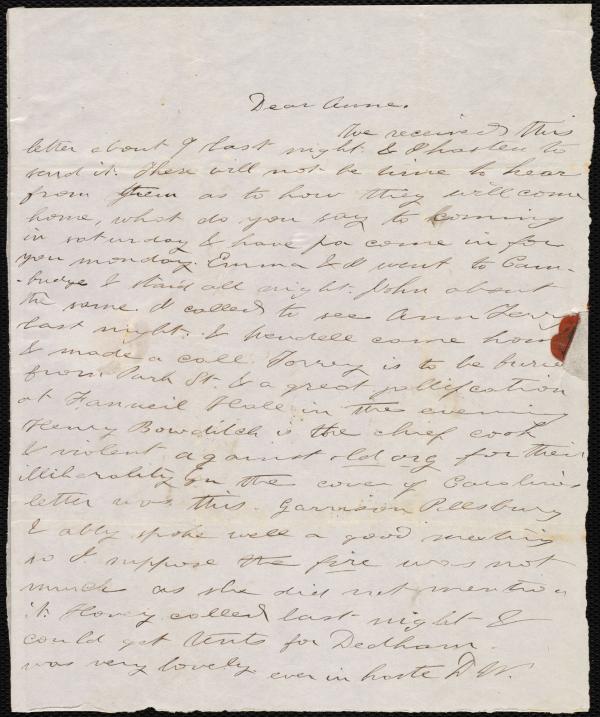 Dear Anne.
We received this
letter about 9 last night & I hasten to
send it. There will not be time to hear
from them as to how they will come
home, what do you say to coming
in saturday & have pa come in for
you monday. Emma & I went to Cam-
-bridge & staid all night. John about
the same. I called to see Ann Terry
last night. & Wendell came home
& made a call. Torrey is to be buried
from Park St. & a great jollification
at Faneuil Hall in the evening
Henry Bowditch is the chief cook
& violent against old org for their
illiberality. On the cover of Caroline's
letter was this. Garrison Pillsbury
& abby spoke well a good meeting
so I suppose the fire was not
much as she did not mention
it. Hovey called last night &
could get tents for Dedham.
was very lovely ever in haste D W.